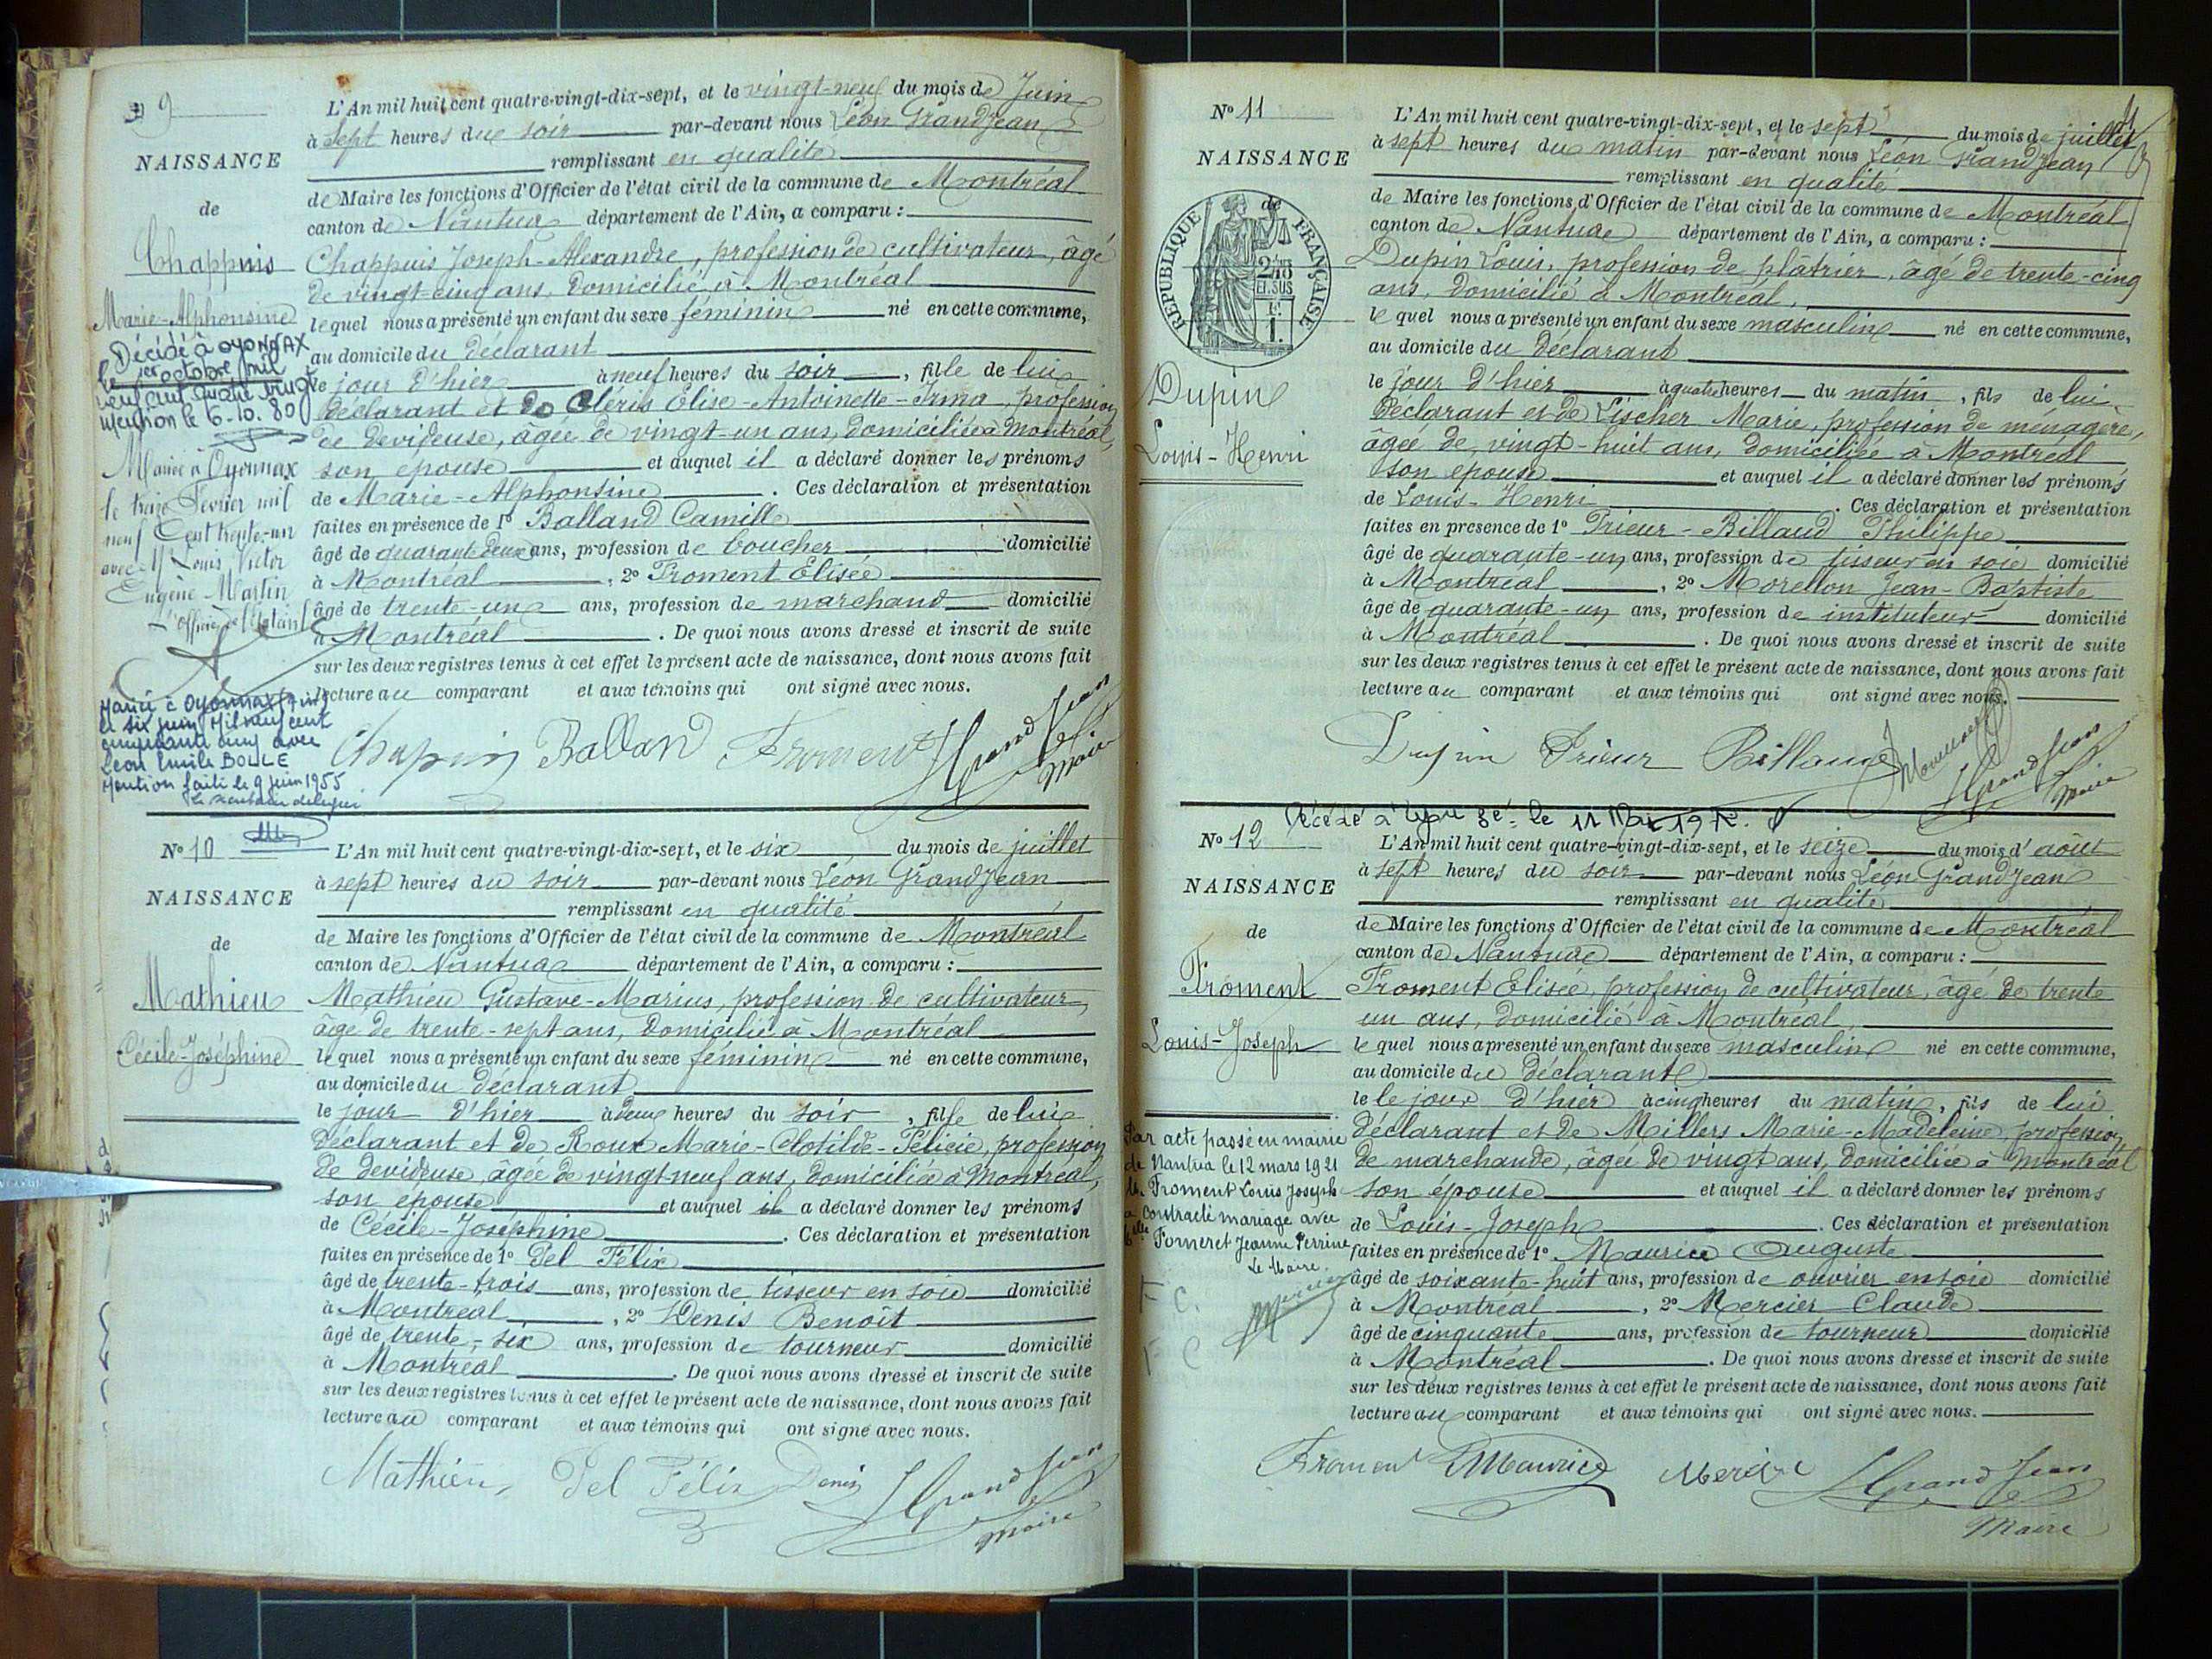 9
NAISSANCE
de
Chappuis
Marie-Alphonsine
Décédé à OYONNAX
le 1er octobre mil
neuf cent quatre vingt
Mention le 6.10.80
Mariée à Oyonnax
le treize Février mil
neuf Cent trente-un
avec Mr Louis Victor
Eugène Martin
L'Officier de l'Etat civil
Marié à Oyonnax (Ain)
le six juin Mil neuf cent
cinquante cinq avec
Léon Emile BOLLE
Mention faite le 9 juin 1955
L'An mil huit cent quatre-vingt-dix-sept, et le vingt-neuf du mois de Juin
à Sept heures du soir par-devant nous Léon Grandjean
remplissant en qualité
de Maire les fonctions d'Officier de l'état civil de la commune de Montréal
canton de Nantua département de l'Ain, a comparu :
Chappuis Joseph-Alexandre, profession de cultivateur, âgé
de vingt-cinq ans, domicilié à Montréal
lequel nous a présenté un enfant du sexe féminin né en cette commune,
au domicile du déclarant
le jour d'hier à neuf heures du soir, fille de lui
déclarant et de Cléris Elise-Antoinette-Irma, profession
de devideuse, âgée de vingt-un ans, domiciliée à Montréal,
son epouse et auquel il a déclaré donner les prénoms
de Marie-Alphonsine. Ces déclaration et présentation
faites en présence de 1° Balland Camille
âgé de quarante deux ans, profession de boucher domicilié
à Montréal, 2° Froment Elisée
âgé de trente-un ans, profession de marchand domicilié
à Montréal. De quoi nous avons dressé et inscrit de suite
sur les deux registres tenus à cet effet le présent acte de naissance, dont nous avons fait
lecture au comparant et aux témoins qui ont signé avec nous.
Chapuis Balland Froment Grandjean
Maire
N° 10
NAISSANCE
de
Mathieu
Cécile-Joséphine
L'An mil huit cent quatre-vingt-dix-sept, et le six du mois de juillet
à sept heures du soir par-devant nous Léon Grandjean
remplissant en qualité
de Maire les fonctions d'Officier de l'état civil de la commune de Montréal
canton de Nantua département de l'Ain, a comparu :
Mathieu Gustave-Marius, profession de cultivateur,
âgé de trente-sept ans, domicilié à Montréal
lequel nous a présenté un enfant du sexe féminin né en cette commune,
au domicile du déclarant
le jour d'hier à deux heures du soir, fille de lui
déclarant et de Roux Marie-Clotilde-Félicie, profession
de devideuse, âgée de vingt-neuf ans, domiciliée à Montréal,
son epouse et auquel il a déclaré donner les prénoms
de Cécile-Joséphine. Ces déclaration et présentation
faites en présence de 1° Pel Félix
âgé de trente-trois ans, profession de tisseur en soie domicilié
à Montréal, 2° Denis Benoît
âgé de trente-six ans, profession de tourneur domicilié
à Montréal. De quoi nous avons dressé et inscrit de suite
sur les deux registres tenus à cet effet le présent acte de naissance, dont nous avons fait
lecture au comparant et aux témoins qui ont signé avec nous.
Mathieu Pel Félix Denis Grandjean
maire
N° 11
NAISSANCE
de
REPUBLIQUE FRANÇAISE
Dupin
Louis-Henri
L'An mil huit cent quatre-vingt-dix-sept, et le sept du mois de juillet
à sept heures du matin par-devant nous Léon Grandjean
remplissant en qualité
de Maire les fonctions d'Officier de l'état civil de la commune de Montréal
canton de Nantua département de l'Ain, a comparu :
Dupin Louis, profession de plâtrier, âgé de trente-cinq
ans, domicilié à Montréal,
lequel nous a présenté un enfant du sexe masculin né en cette commune,
au domicile du déclarant
le jour d'hier à quatre heures du matin, fils de lui
déclarant et de Lischer Marie, profession de ménagère,
âgée de vingt-huit ans, domiciliée à Montréal
son epouse et auquel il a déclaré donner les prénoms
de Louis-Henri. Ces déclaration et présentation
faites en présence de 1° Prieur-Billaud Philippe
âgé de quarante-un ans, profession de tisseur en soie domicilié
à Montréal, 2° Morellon Jean-Baptiste
âgé de quarante-un ans, profession de instituteur domicilié
à Montréal. De quoi nous avons dressé et inscrit de suite
sur les deux registres tenus à cet effet le présent acte de naissance, dont nous avons fait
lecture au comparant et aux témoins qui ont signé avec nous.
Dupin Prieur Billaud Grandjean
Maire
Décédé à Lyon 3e le 11 Mai
N° 12
NAISSANCE
de
Froment
Louis-Joseph
Par acte passé en mairie
de Nantua le 12 mars 1921
Froment Louis Joseph
a contracté mariage avec
Forneret Jeanne Perrine
Le Maire
F C.
F C
L'An mil huit cent quatre-vingt-dix-sept, et le seize du mois d'août
à sept heures du soir par-devant nous Léon Grandjean
remplissant en qualité
de Maire les fonctions d'Officier de l'état civil de la commune de Montréal
canton de Nantua département de l'Ain, a comparu :
Froment Elisée, profession de cultivateur, âgé de trente
un ans, domicilié à Montréal
lequel nous a présenté un enfant du sexe masculin né en cette commune,
au domicile du déclarant
le le jour d'hier à cinq heures du matin, fils de lui
déclarant et de Millers Marie-Madeleine, profession
de marchande, âgée de vingt ans, domiciliée à Montréal
son épouse et auquel il a déclaré donner les prénoms
de Louis-Joseph. Ces déclaration et présentation
faites en présence de 1° Maurice Auguste
âgé de soixante-huit ans, profession de ouvrier en soie domicilié
à Montréal, 2° Mercier Claude
âgé de cinquante ans, profession de tourneur domicilié
à Montréal. De quoi nous avons dressé et inscrit de suite
sur les deux registres tenus à cet effet le présent acte de naissance, dont nous avons fait
lecture au comparant et aux témoins qui ont signé avec nous.
Froment Maurice Mercier Grandjean
Maire